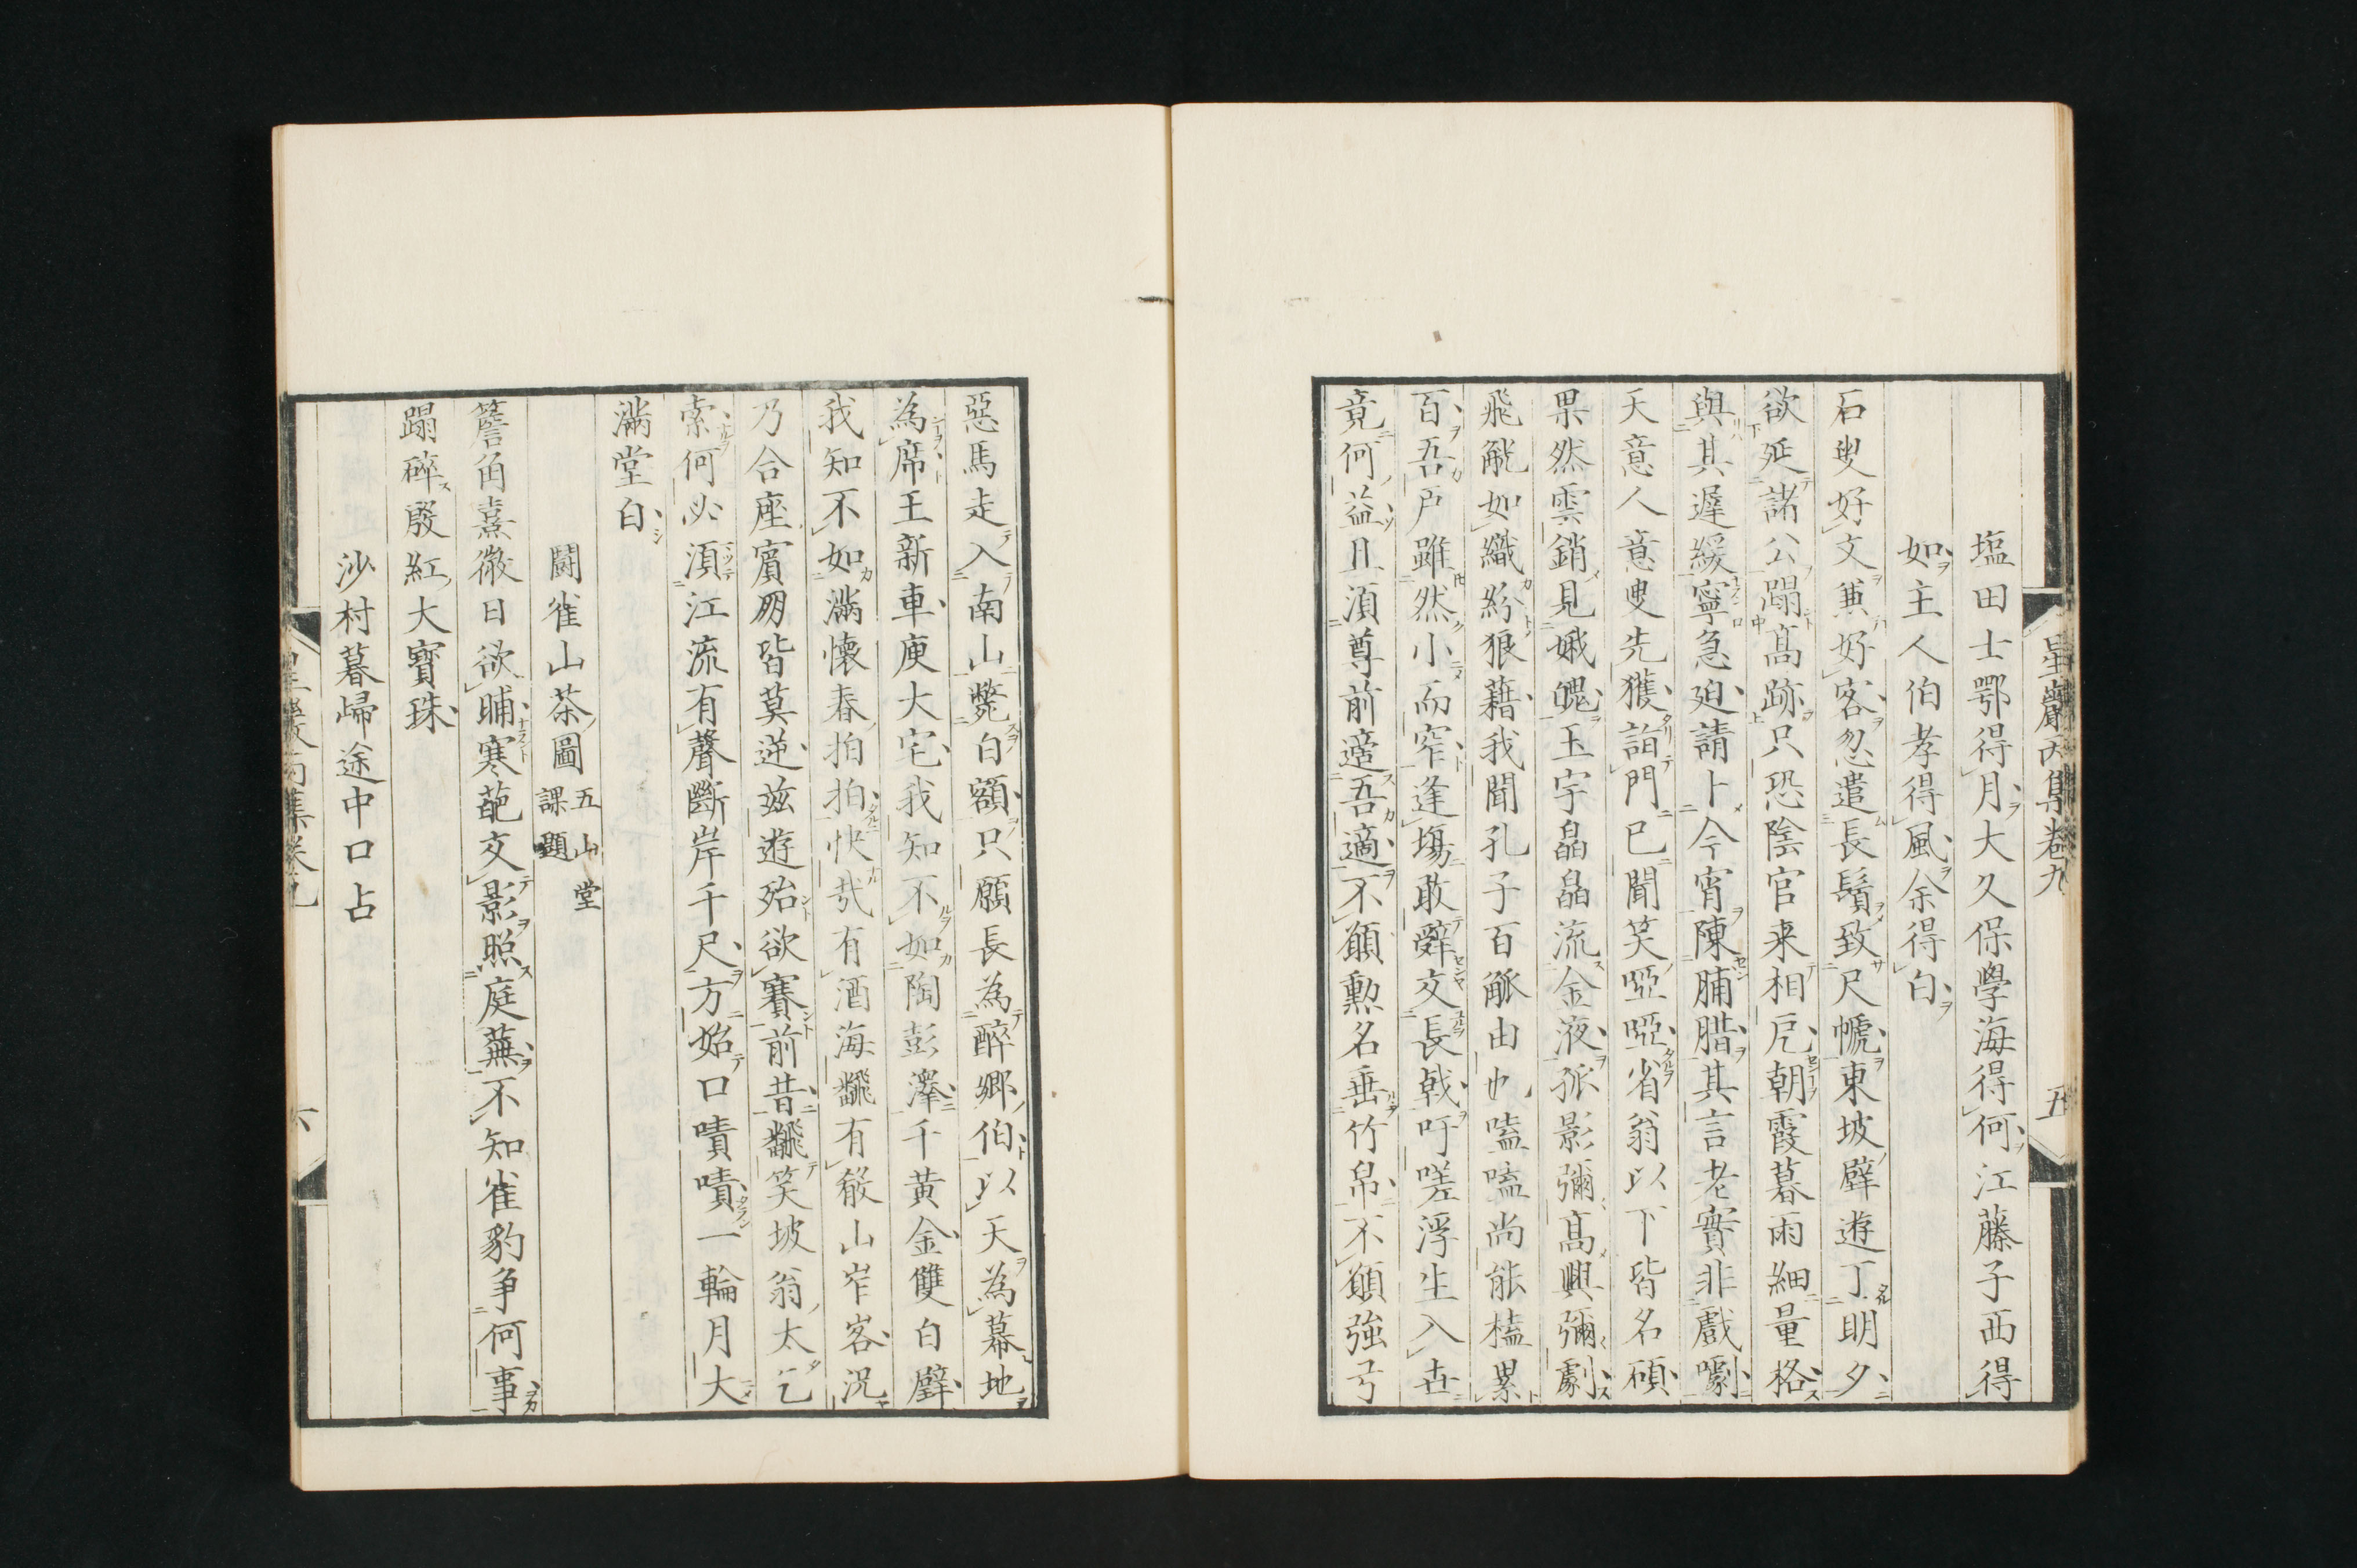 星巖丙集卷九
五
塩田士鄂得月大久保學海得何江藤子西得
如主人伯孝得風余得白
石叟好文兼好客忽遣長鬚致尺㡠東坡壁遊丁明夕
欲延諸公躡髙跡只恐陰官来相戹朝霞暮雨細量格
與其遲緩寧急迫請卜今宵陳脯腊其言老實非戲噱
天意人意叟先獲詣門已聞笑啞啞省翁以下皆名碩
果然雲銷見娥魄玉宇皛皛流金液孤影彌髙興彌劇
飛觥如織紛狼藉我聞孔子百觚由也嗑嗑尚能榼累
百吾戶雖然小而窄逢塲敢辭交長戟吁嗟浮生入世
竟何益且須尊前適吾適不願勲名垂竹帛不願強弓
惡馬走入南山斃白額只願長為醉鄉伯以天為幕地
為席王新車庾大宅我知不如陶彭澤千黃金雙白璧
我知不如滿懷春拍拍快哉有酒海飜有骰山岝客況
乃合座賓朋皆莫逆兹遊殆欲賽前昔飜笑坡翁太乞
索何必須江流有聲斷岸千尺方始口嘖嘖一輪月大
滿堂白
鬪雀山茶圖 五山堂
課題
簷角熹微日欲晡寒葩交影照庭蕪不知雀豹爭何事
蹋碎殷紅大寶珠
沙村暮歸途中口占
星巖丙集卷九
六